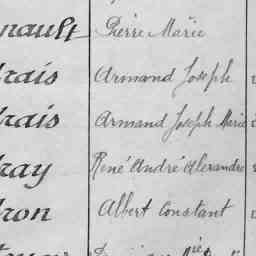 nault Pierre Marie
rais Armand Joseph
rais Armand Joseph Marie
ray René André Alexandre
ron Albert Constant